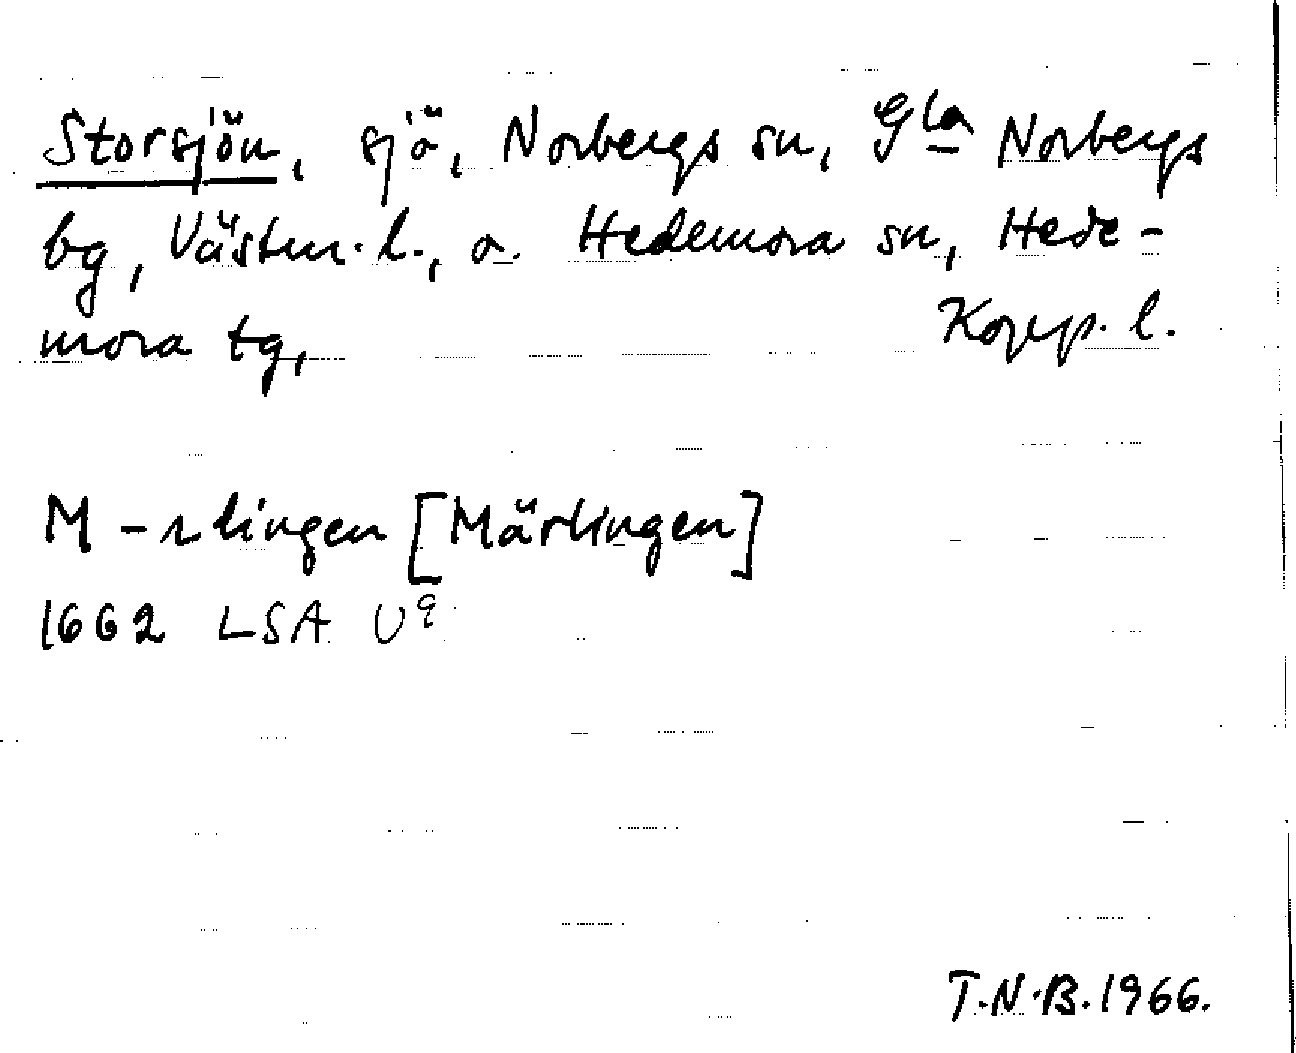 Storsjön, sjö, Norbergs sn, Gla Norbergs
bg, Västm. l., o. Hedemora sn, Hede-
mora tg, Kopp. l.
M-rlingen [Märlingen]
1662 LSA U9
T.N.B. 1966.